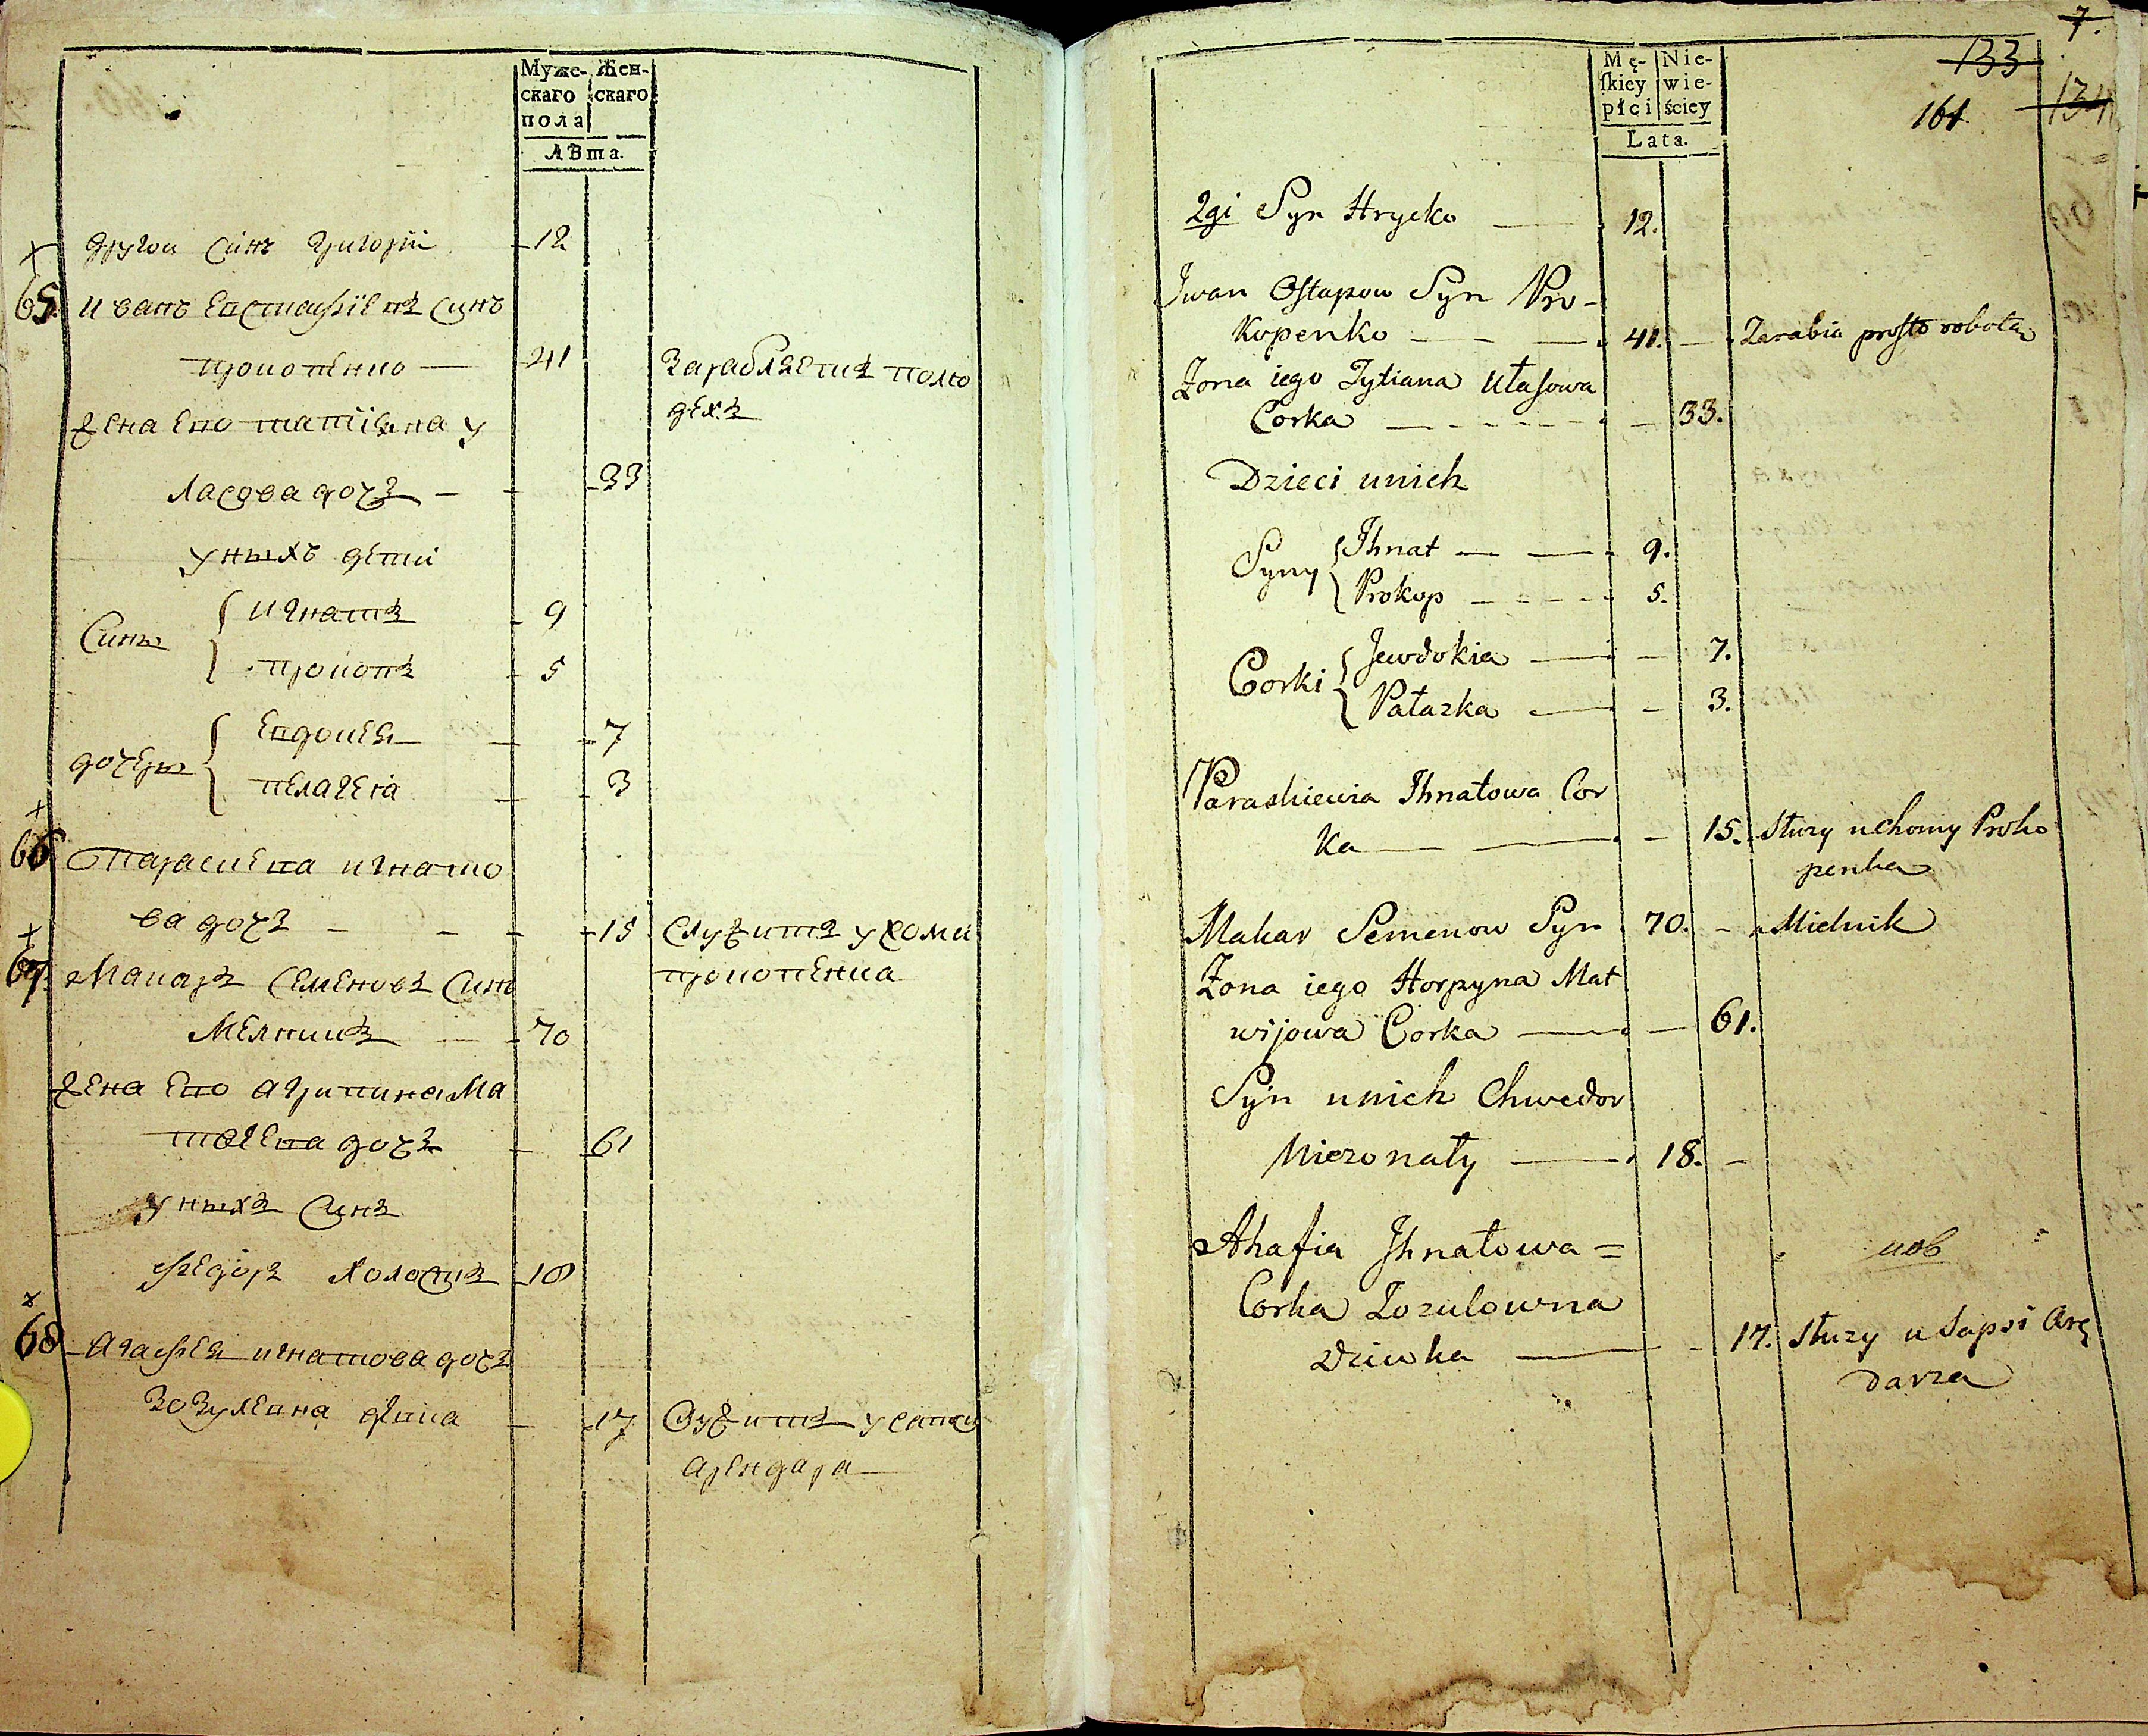 Муже-
скаго
пола
Жен-
скаго
лѣта.
другои синъ григорїй 12
65. иванъ Евстафїевъ синъ
прокопенко 41 зарабляетъ полю
дехъ
жена Ево татїяна у
ласова дочъ 33
уныхъ дети
Сины
игнатъ 9
прокопъ 5
дочеры
Евдокея 7
пелагеꙗ 3
66 Параскева игнато
ва дочъ 15 служитъ у хоми
прокопенка
67. Макаръ Семеновъ Синъ
мелникъ 70
жена Ево агрипина Ма
твеева дочъ 61
уныхъ Синъ
федоръ холостъ 18
68 Агафея игнатова дочъ
зозулевна девка 17 Служитъ у сапси
арендара
7.
133
164
134
Mę-
ſkiey
płci
Nie-
wie-
ściey
Lata.
2gi Syn Hrycko 12.
Jwan Ostapow Syn Pro-
kopenko 41. Zarabia prosto robotą
Zona iego Tytiana Ułasowa
Corka 33.
Dzieci unich
Syny
Jhnat 9.
Prokop 5.
Corki
Jewdokia 7.
Pałazka 3.
Paraskiewia Jhnatowa Cor
ka 15. Służy uchomy Proko
penka
Makar Semenow Syn 70. Mielnik
Zona iego Horpyna Mat
wijowa Corka 61.
Syn unich Chwedor
Niezonaty 18.
Ahafia Jhnatowa =
Corka Zozulowna
Dziwka 17. Służy u Sapsi Arę
darza